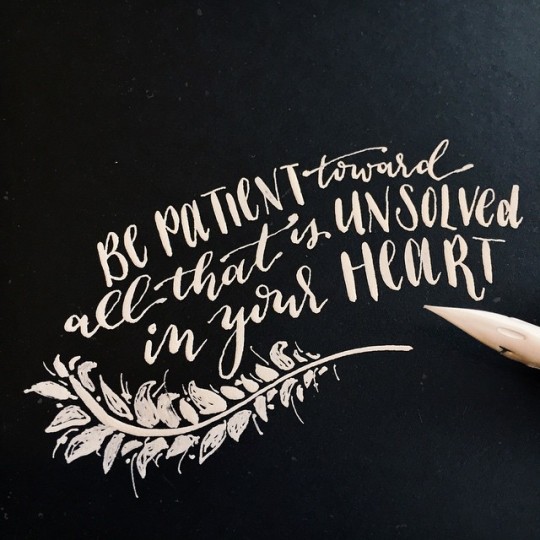 Be PATIENT toward
all that is UNSOLVed
in your HeART